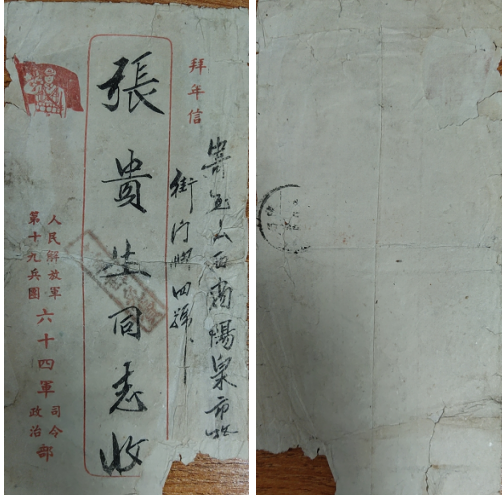 拜年信
寄至山西省陽泉市
街 四號
張貴生同志收
人民解放軍
第十九兵團
六十四軍
司令
政治
部